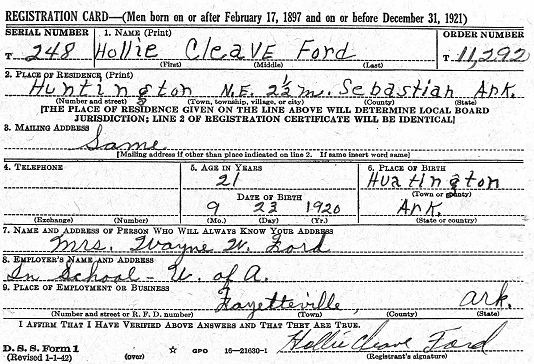 REGISTRATION CARD—(Men born on or after February 17, 1897 and on or before December 31, 1921)
SERIAL NUMBER 1. NAME (Print) ORDER NUMBER
T 248 Hollie Cleave Ford T 11,292
(First) (Middle) (Last)
2. PLACE OF RESIDENCE (Print)
Huntington N.E. 2½ m. Sebastian Ark.
(Number and street) (Town, township, village, or city) (County) (State)
[THE PLACE OF RESIDENCE GIVEN ON THE LINE ABOVE WILL DETERMINE LOCAL BOARD
JURISDICTION; LINE 2 OF REGISTRATION CERTIFICATE WILL BE IDENTICAL]
3. MAILING ADDRESS
Same
[Mailing address if other than place indicated on line 2. If same insert word same]
4. TELEPHONE 5. AGE IN YEARS 6. PLACE OF BIRTH
21 Huntington
DATE OF BIRTH (Town or county)
9 23 1920 Ark.
(Exchange) (Number) (Mo.) (Day) (Yr.) (State or country)
7. NAME AND ADDRESS OF PERSON WHO WILL ALWAYS KNOW YOUR ADDRESS
Mrs. Wayne W. Ford
8. EMPLOYER'S NAME AND ADDRESS
In School - U. of A.
9. PLACE OF EMPLOYMENT OR BUSINESS
Fayetteville, Ark.
(Number and street or R. F. D. number) (Town) (County) (State)
I AFFIRM THAT I HAVE VERIFIED ABOVE ANSWERS AND THAT THEY ARE TRUE.
D. S. S. Form 1 Hollie Cleave Ford
(Revised 1-1-42) (over) ☆ GPO 16—21630-1 (Registrant's signature)